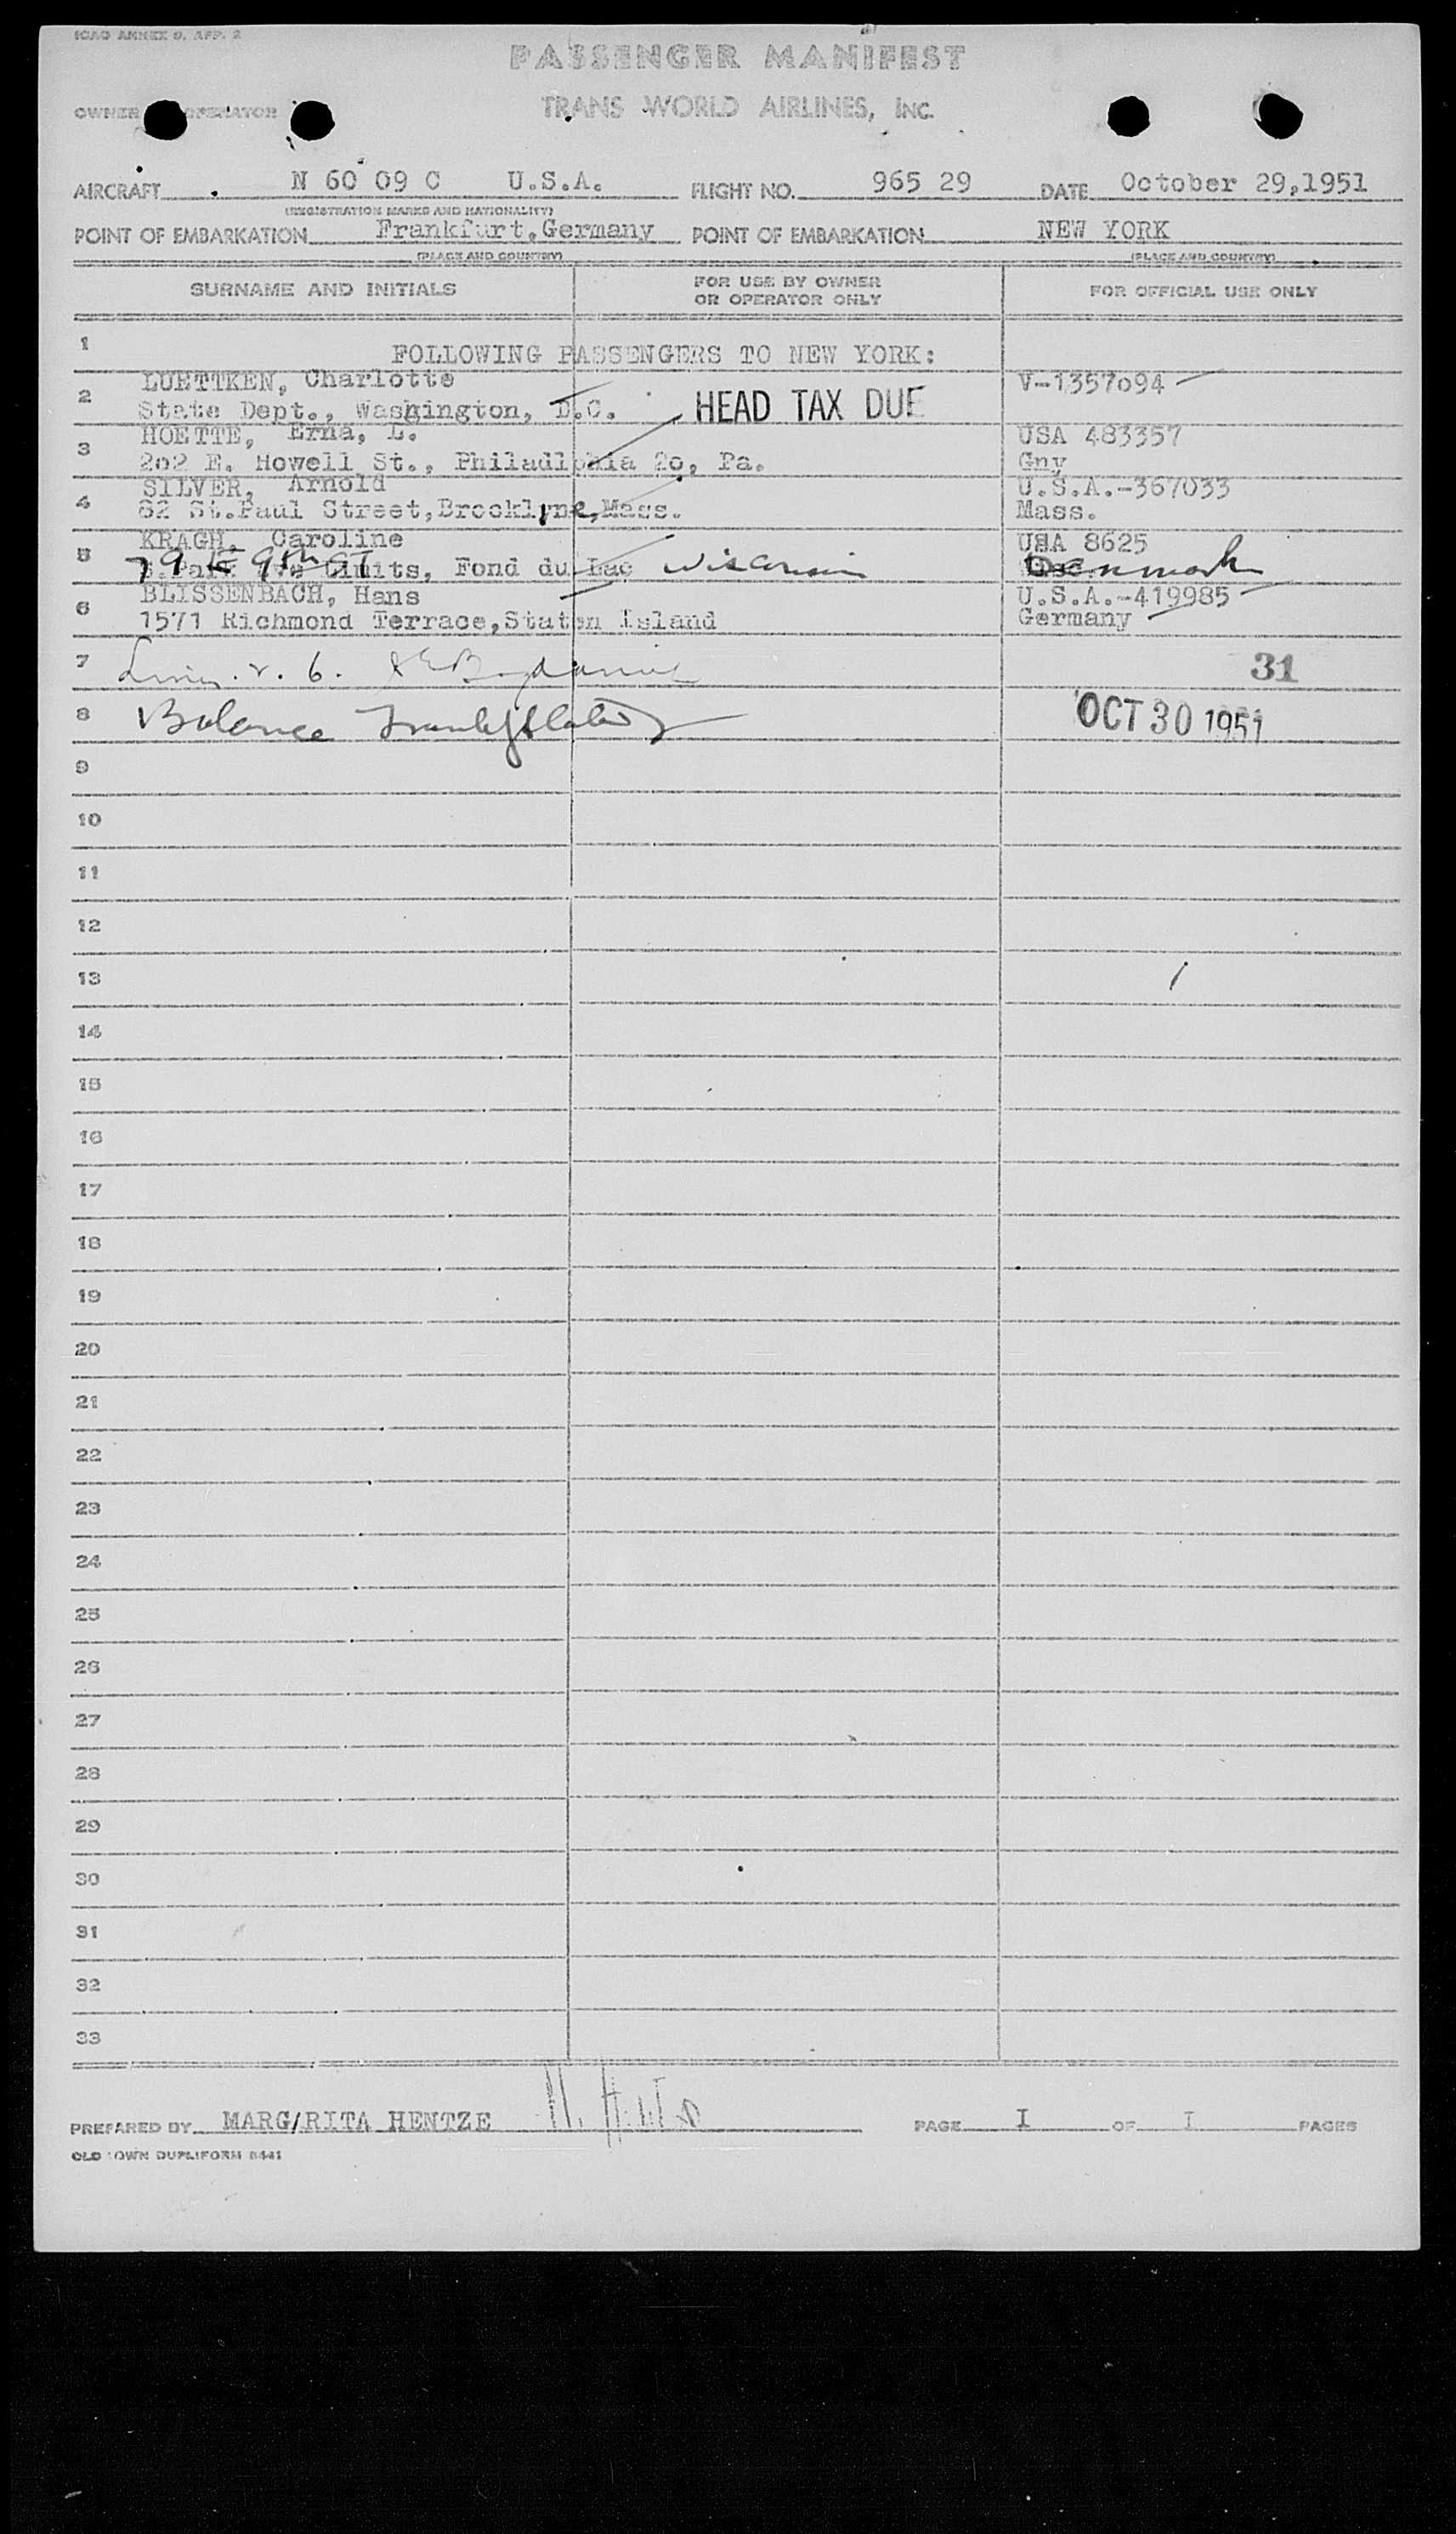 ICAO ANNEX 9, APP. 2
PASSENGER MANIFEST
OWNER OPERATOR TRANS WORLD AIRLINES, INC.
AIRCRAFT N 60 09 C U.S.A. FLIGHT NO. 965 29 DATE October 29,1951
(REGISTRATION MARKS AND NATIONALITY)
POINT OF EMBARKATION Frankfurt,Germany POINT OF EMBARKATION NEW YORK
(PLACE AND COUNTRY) (PLACE AND COUNTRY)
SURNAME AND INITIALS FOR USE BY OWNER OR OPERATOR ONLY FOR OFFICIAL USE ONLY
1 FOLLOWING PASSENGERS TO NEW YORK:
2 LUETTKEN, Charlotte V-1357094
State Dept., Washington, D.C. HEAD TAX DUE
3 HOETTE, Erna, L. USA 483357
202 E. Howell St., Philadlphia 20, Pa. Gny
4 SILVER, Arnold U.S.A.-367033
62 St.Paul Street,Brooklyne,Mass. Mass.
5 KRAGH, Caroline USA 8625
79 E 9th ST Limits, Fond du Lac Wisconsin Denmark
6 BLISSENBACH, Hans U.S.A.-419985
1571 Richmond Terrace,Staten Island Germany
7 Lines 2. 6. 31
8 Balance OCT 30 1951
9
10
11
12
13
14
15
16
17
18
19
20
21
22
23
24
25
26
27
28
29
30
31
32
33
PREPARED BY MARG/RITA HENTZE PAGE I OF I PAGES
OLD TOWN DUPLIFORM 8441